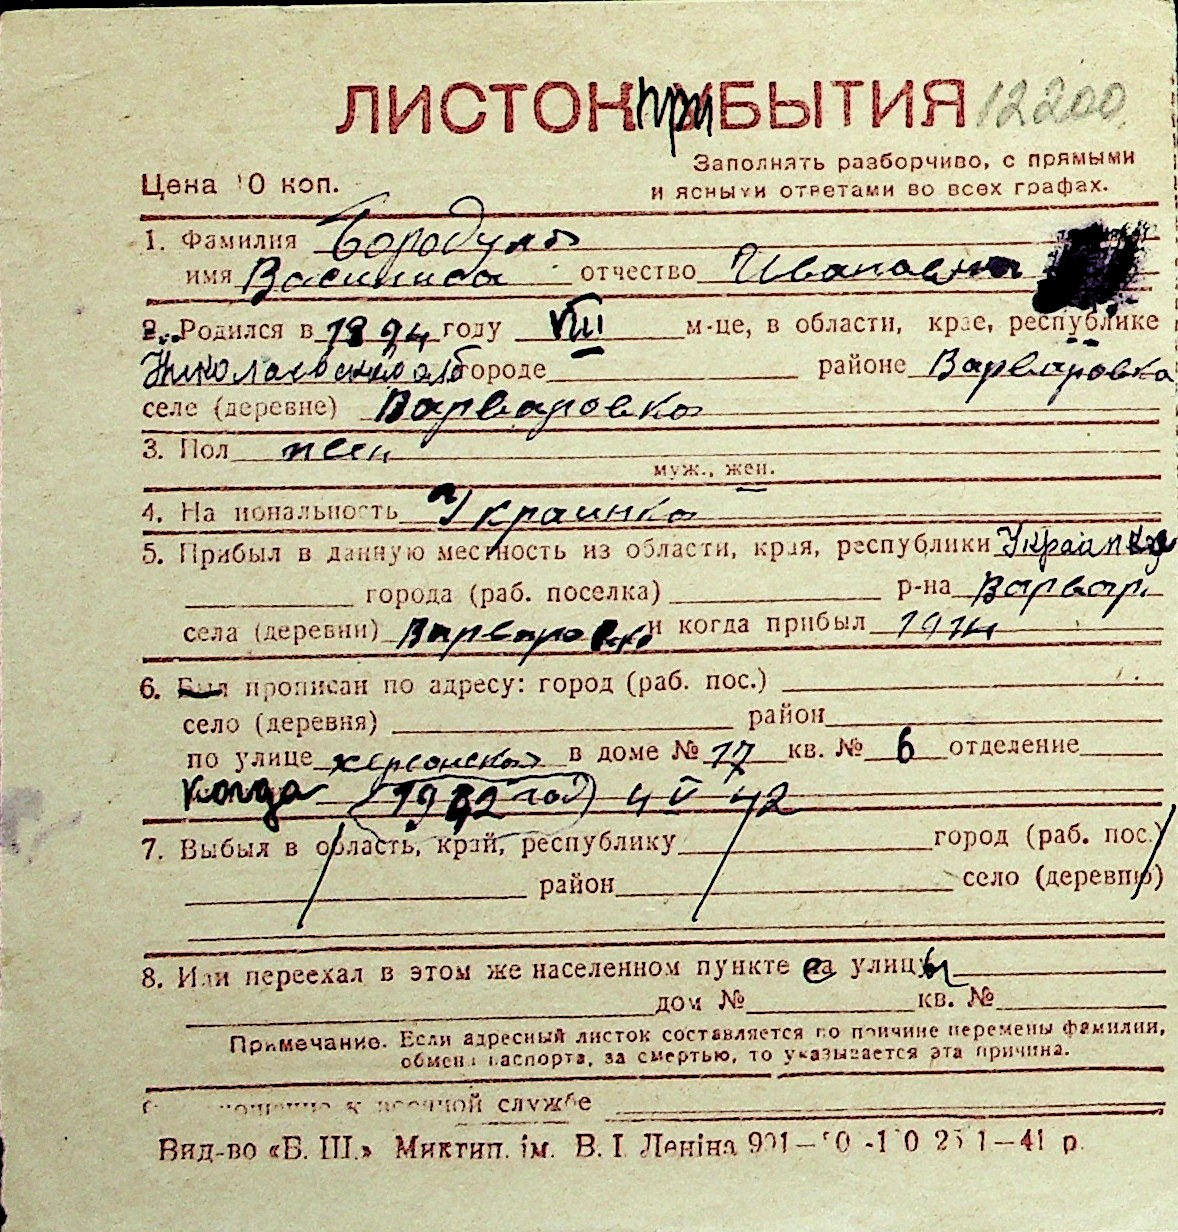 ЛИСТОК при БЫТИЯ 12200
Заполнять разборчиво, с прямыми
Цена 10 коп.
и ясными ответами во всех графах.
1. Фамилия Бородуля
имя Василиса отчество Ивановна
2. Родился в 1894 году VIII м-це, в области, крае, республике
Николаевской обл городе районе Варваровка
селе (деревне) Варваровка
3. Пол жен
муж., жен.
4. Национальность Украинка
5. Прибыл в данную местность из области, края, республики
города (раб. поселка) р-на Варвар.
села (деревни) Варваровка и когда прибыл
6. Был прописан по адресу: город (раб. пос.)
село (деревня) район
по улице херсонская в доме № 17 кв. № 6 отделение
когда 1942 год 4 V 42
7. Выбыл в область, край, республику город (раб. пос.)
район село (деревню)
8. Или переехал в этом же населенном пункте с улицы
дом № кв. №
Примечание. Если адресный листок составляется по причине перемены фамилии,
обмена паспорта, за смертью, то указывается эта причина.
к военной службе
Вид-во «Б. Ш.» Миктип. ім. В. І. Леніна 41 р.